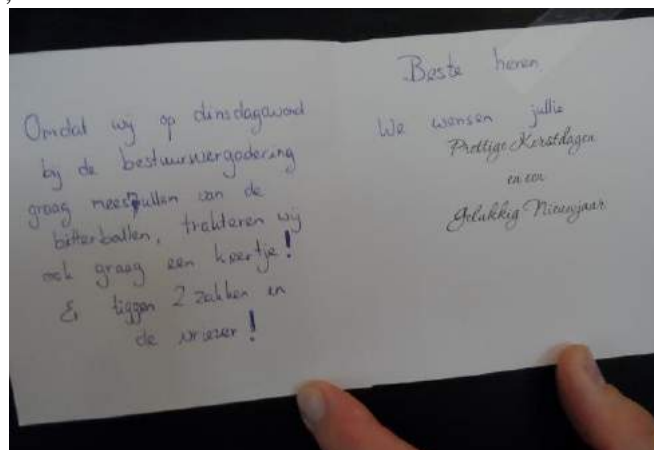 Omdat wij op dinsdagavond
bij de bestuursvergadering
graag meesmullen van de
bitterballen, trakteren wij
ook graag een keertje!
Er liggen 2 zakken in
de vriezer!
Beste heren
We wensen jullie
Prettige Kerstdagen
en een
Gelukkig Nieuwjaar